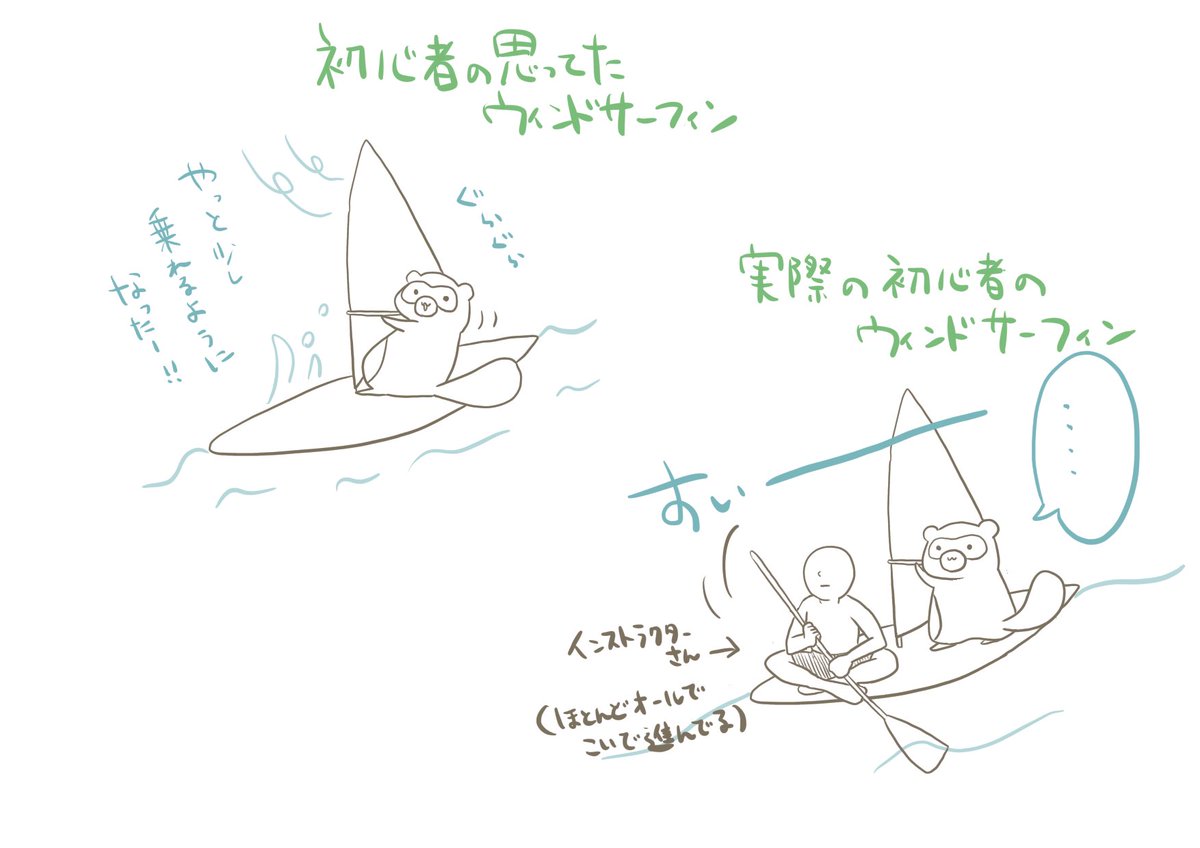 初心者の思ってた
ウィンドサーフィン
やっと少し
乗れるように
なったー!!
ぐらぐら
実際の初心者の
ウィンドサーフィン
.....
すいー
インストラクター
さん
(ほとんどオールで
こいで進んでる)